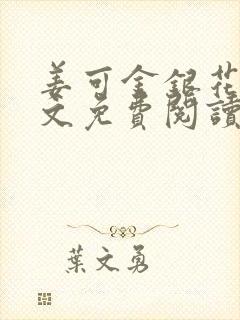 姜可金銀花
文免費閱讀
葉文勇